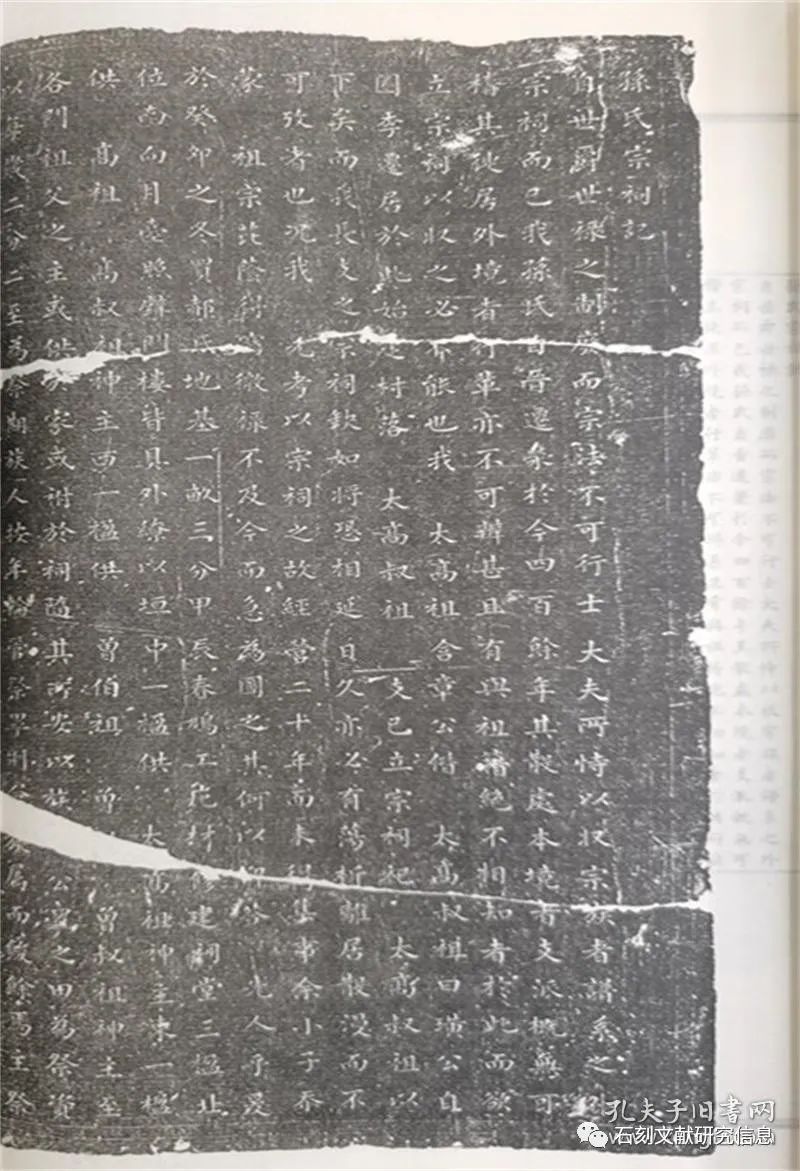 孫氏宗祠記
自世爵世祿之制廢而宗法不可行士大夫所恃以収宗族者譜系之外
宗祠而已我孫氏自晉遷象於今四百餘年其散處本境者支派概無可
稽其徙居外境者行輩亦不可辨甚且有與祖籍絶不相知者於此而欲
立宗祠以収之必不能也我 太高祖含章公偕 太高叔祖曰璜公自
因李遷居於此始村落 太高叔祖支已立宗祠祀 太高叔祖以
下矣而我長支之宗祠欿如將恐相延日久亦必有蕩析離居散漫而不
可攷者也况我 先考以宗祠之故經營二十年而未集事余小子忝
蒙 祖宗庇蔭得微祿不及今而急為圖之其何以先人乎爰
於癸卯之冬買郝氏地基一畝三分甲辰春鳩工庀材建祠堂三楹北
位南向月臺照壁門樓皆具外繚以垣中一楹供 太高祖神主東一楹
供 高祖 高叔祖神主西一楹供 曾伯祖 曾 曾叔祖神主至
各門祖父之主或供於家或祔於祠隨其所安以族公置之田為祭資
以春秋二分二至為祭期族人按年輪祭畢而餕餘焉主祭
孔夫子旧书网
石刻文献研究信息